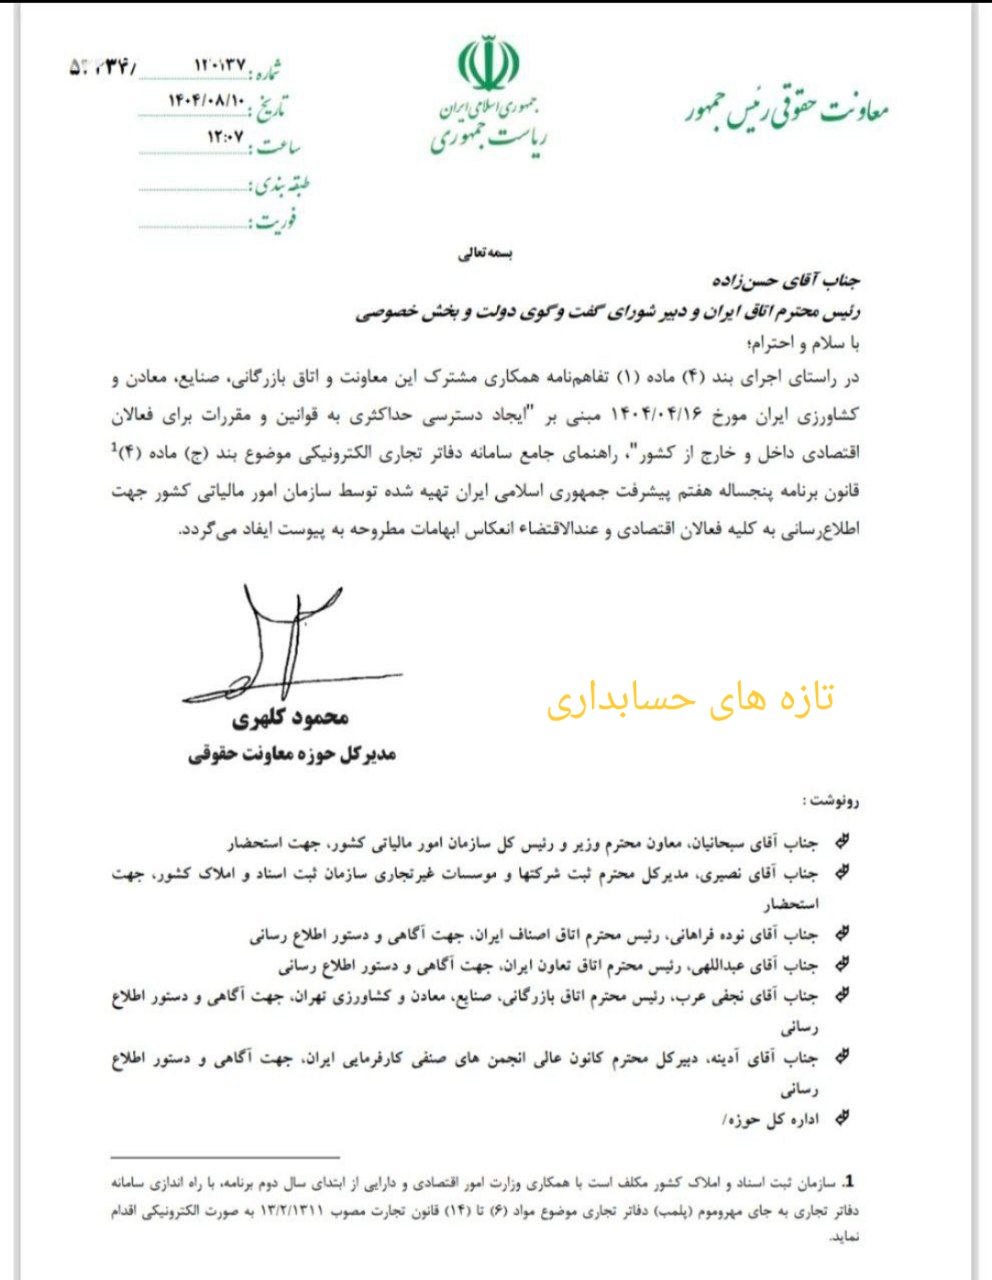 معاونت حقوقی رئیس جمهور
جمهوری اسلامی ایران
ریاست جمهوری
شماره: ۱۲۰۱۳۷
تاریخ: ۱۴۰۴/۰۸/۱۰
ساعت: ۱۲:۰۷
طبقه بندی:
فوریت:
بسمه تعالی
جناب آقای حسن‌زاده
رئیس محترم اتاق ایران و دبیر شورای گفت وگوی دولت و بخش خصوصی
با سلام و احترام؛
در راستای اجرای بند (۴) ماده (۱) تفاهم‌نامه همکاری مشترک این معاونت و اتاق بازرگانی، صنایع، معادن و
کشاورزی ایران مورخ ۱۴۰۴/۰۴/۱۶ مبنی بر "ایجاد دسترسی حداکثری به قوانین و مقررات برای فعالان
اقتصادی داخل و خارج از کشور"، راهنمای جامع سامانه دفاتر تجاری الکترونیکی موضوع بند (ج) ماده (۴)1
قانون برنامه پنجساله هفتم پیشرفت جمهوری اسلامی ایران تهیه شده توسط سازمان امور مالیاتی کشور جهت
اطلاع‌رسانی به کلیه فعالان اقتصادی و عندالاقتضاء انعکاس ابهامات مطروحه به پیوست ایفاد می‌گردد.
محمود کلهری
مدیرکل حوزه معاونت حقوقی
تازه های حسابداری
رونوشت :
جناب آقای سبحانیان، معاون محترم وزیر و رئیس کل سازمان امور مالیاتی کشور، جهت استحضار
جناب آقای نصیری، مدیرکل محترم ثبت شرکتها و موسسات غیرتجاری سازمان ثبت اسناد و املاک کشور، جهت
استحضار
جناب آقای نوده فراهانی، رئیس محترم اتاق اصناف ایران، جهت آگاهی و دستور اطلاع رسانی
جناب آقای عبداللهی، رئیس محترم اتاق تعاون ایران، جهت آگاهی و دستور اطلاع رسانی
جناب آقای نجفی عرب، رئیس محترم اتاق بازرگانی، صنایع، معادن و کشاورزی تهران، جهت آگاهی و دستور اطلاع
رسانی
جناب آقای آدینه، دبیرکل محترم کانون عالی انجمن های صنفی کارفرمایی ایران، جهت آگاهی و دستور اطلاع
رسانی
اداره کل حوزه/
1. سازمان ثبت اسناد و املاک کشور مکلف است با همکاری وزارت امور اقتصادی و دارایی از ابتدای سال دوم برنامه، با راه اندازی سامانه
دفاتر تجاری به جای مهروموم (پلمب) دفاتر تجاری موضوع مواد (۶) تا (۱۴) قانون تجارت مصوب ۱۳/۲/۱۳۱۱ به صورت الکترونیکی اقدام
نماید.